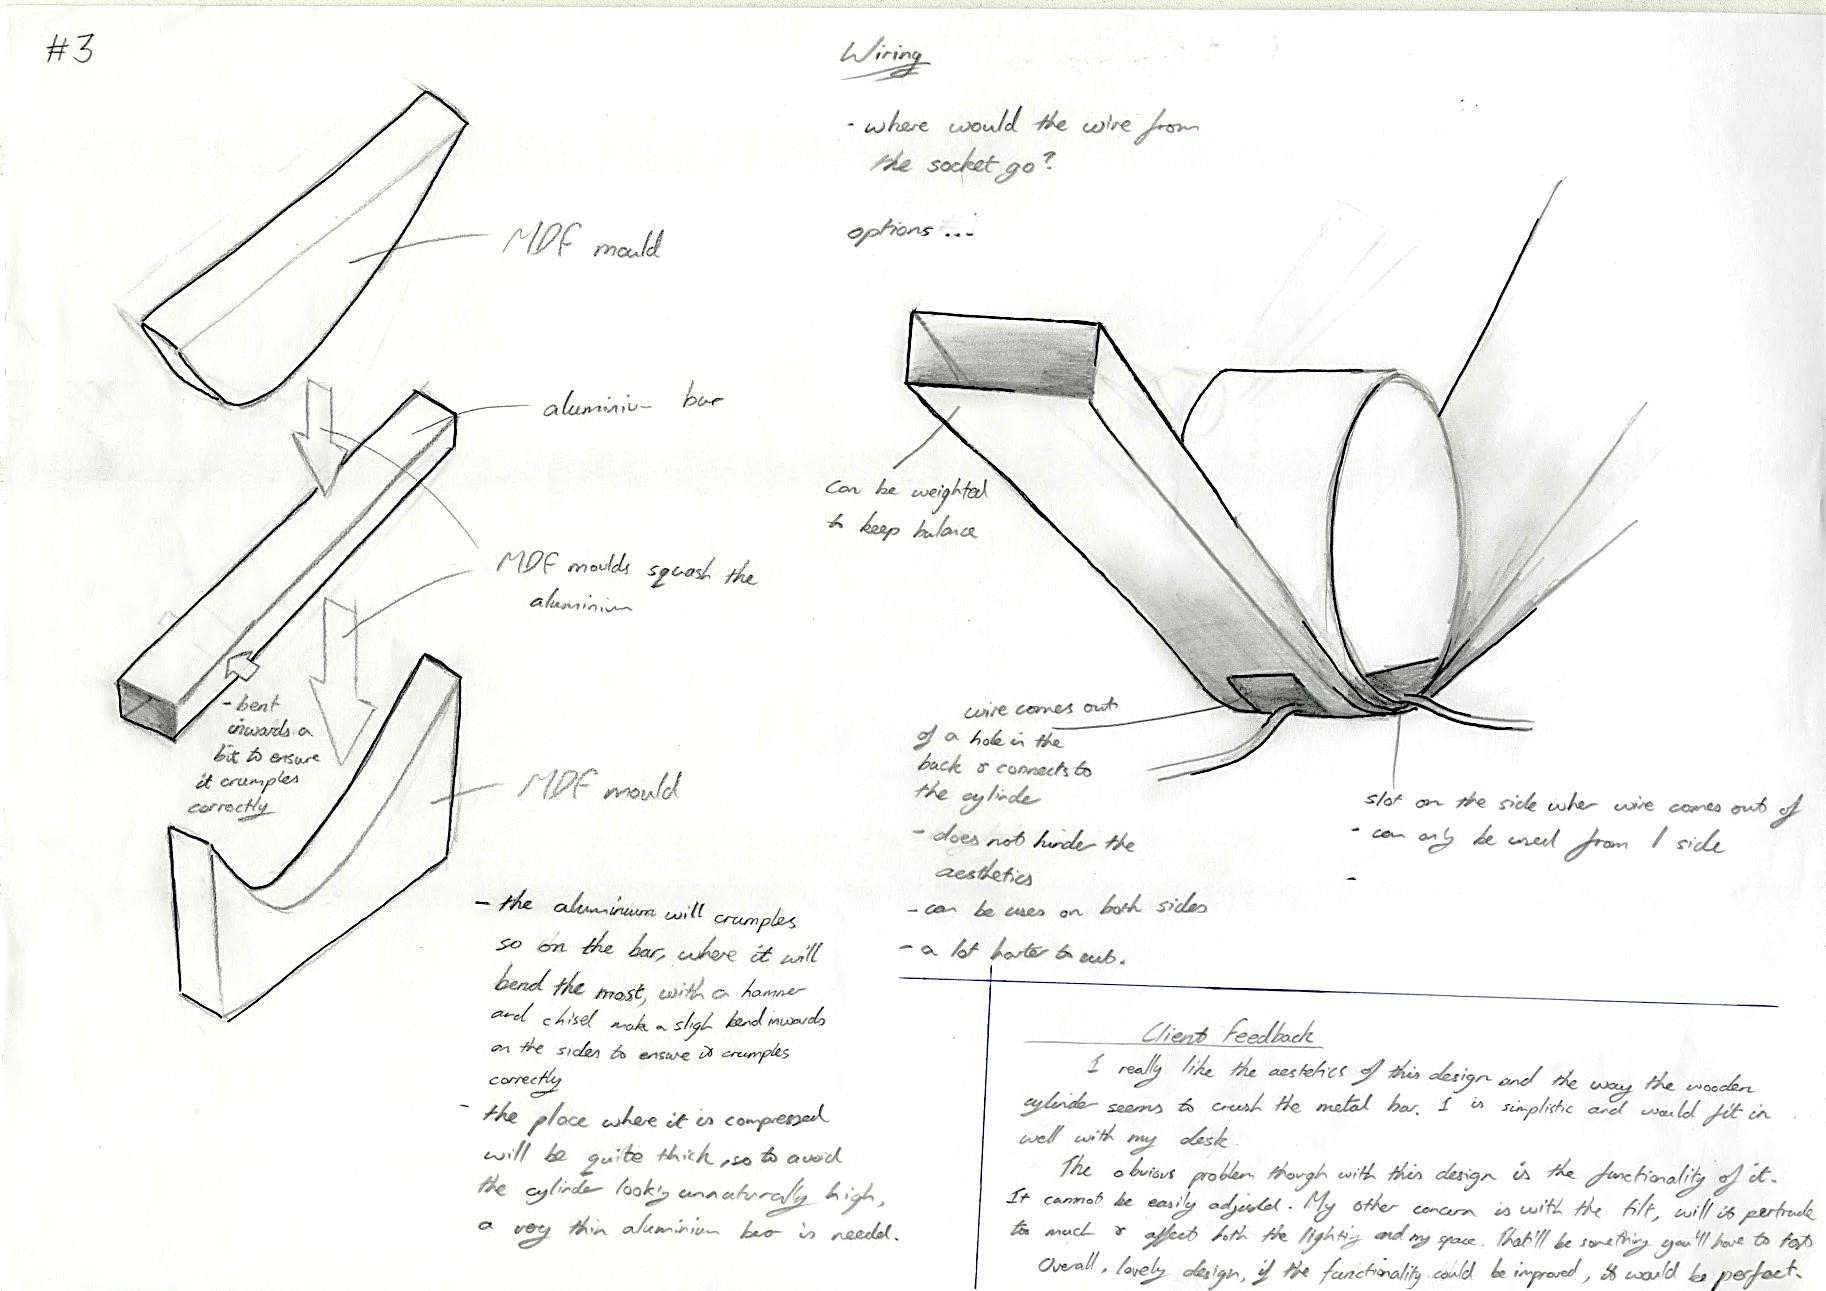 #3
MDF mould
aluminium bar
MDF moulds squash the
aluminium
- bent
inwards a
bit to ensure
it crumples
correctly
MDF mould
- the aluminium will crumples
so on the bar, where it will
bend the most, with a hammer
and chisel make a sligh bend inwards
on the sides to ensure it crumples
correctly
- the place where it is compressed
will be quite thick, so to avoid
the cylinder lookig unnaturally high,
a very thin aluminium bar is needd.
Wiring
- where would the wire from
the socket go?
options ...
can be weighted
to keep balance
wire comes out
of a hole in the
back & connects to
the cylinder
- does not hinder the
aesthetics
- can be uses on both sides
- a lot harter to cut.
slot on the side wher wire comes out of
- can only be used from 1 side
-
Client Feedback
I really like the aestetics of this design and the way the wooden
cylinder seems to crush the metal bar. I is simplistic and would fit in
well with my desk.
The obvious problem though with this design is the functionality of it.
It cannot be easily adjusted. My other concern is with the tilt, will it pertrude
too much & affect both the lighting and my space. That'll be something you'll have to test
Overall, lovely design, if the functionality could be improved, it would be perfect.